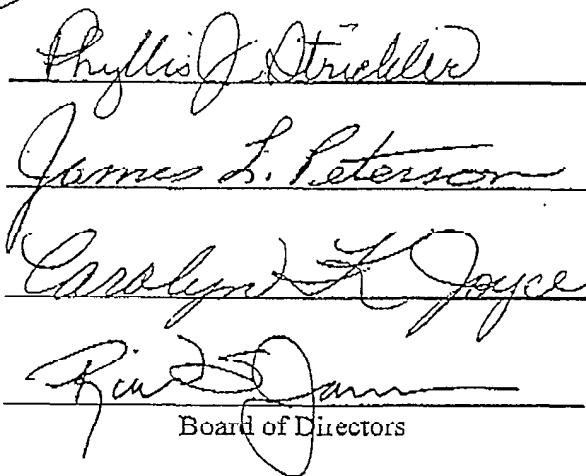 Phyllis J. Strickler
James L. Peterson
Carolyn K Joyce
Board of Directors